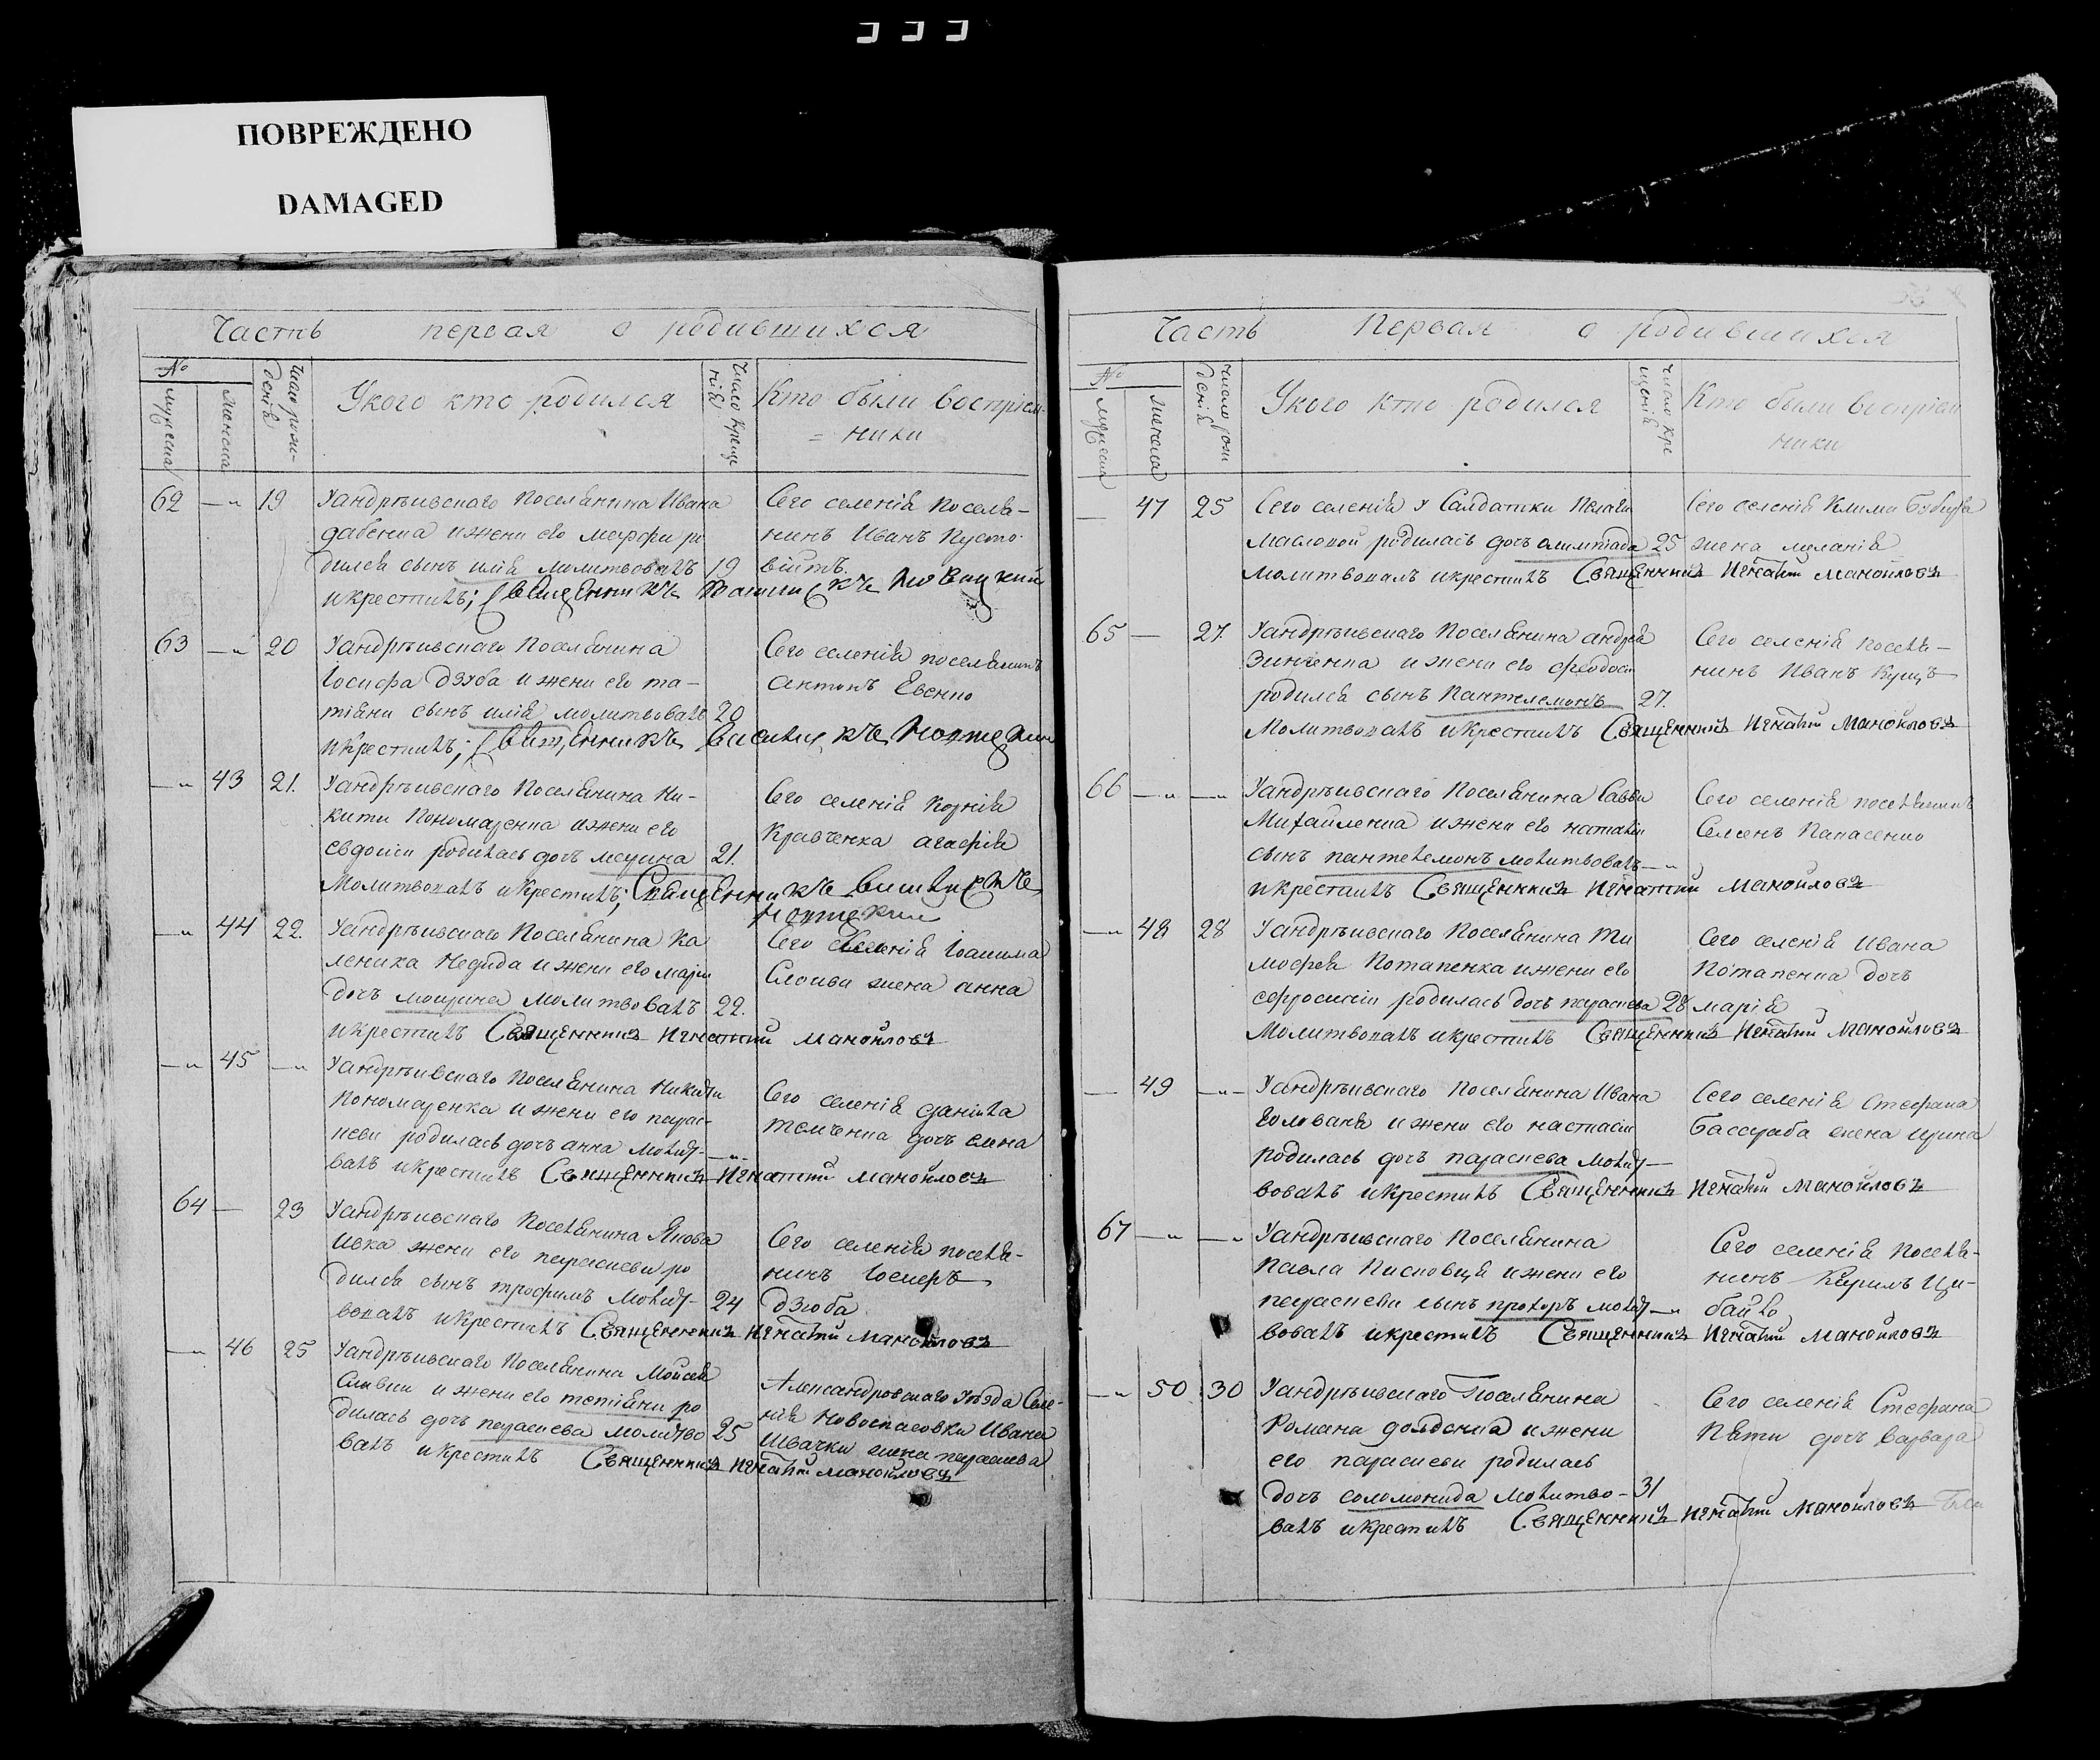 ПОВРЕЖДЕНО
DAMAGED
Часть первая о родившихся
№
мужеска
женска
Число рож-
денія
У кого кто родился
Число креще
нія
Кто были воспріем-
= ники
62 —„ 19 У андрѣивскаго Поселянина Ивана
и жени его
дился сынъ илія молитвовалъ 19
и крестилъ; Священникъ
Сего селенія Посела-
нинъ Иванъ Пусто-
війтъ.
63 —„ 20 У андрѣивскаго Поселянина
Іосифа Дзюба и жени его та-
тіяни сынъ илія молитвовалъ 20
и крестилъ; Священникъ
Сего селенія поселянинъ
антонъ Евенко
—„ 43 21. У андрѣивскаго Поселянина Ни-
кити Пономаренка и жени его
евдокіи родилась дочь 21.
Молитвовалъ и крестилъ; Священникъ
Сего селенія Корнія
Кравченка агафія
—„ 44 22. У андрѣивскаго Поселянина Ка
леника и жени его маріи
дочь молитвовалъ 22.
и крестилъ Священникъ Игнатій Манойловъ
Сего селенія Іоакима
жена анна
—„ 45 —„ У андрѣивскаго Поселянина Никити
Пономаренка и жени его парас-
кеви родилась дочь анна Молит- —„—
валъ и крестилъ Священникъ Игнатій Манойловъ
Сего селенія даніила
темченка дочь елена
64 — 23 У андрѣивскаго Поселянина Якова
Ивка жени его параскеви ро
дился сынъ трофимъ Молит- 24
вовалъ и крестилъ Священникъ Игнатій Манойловъ
Сего селенія поселя-
нинъ Іосифъ
дзюба
—„ 46 25 У андрѣивскаго Поселянина Мойсея
Сливки и жени его тетіяни ро
дилась дочь параскева молитво 25
валъ и крестилъ Священникъ Игнатій Манойловъ
Александровскаго Уѣзда Селе-
нія Новоспасовки Ивана
Швачки жена параскева
Часть Первая о родившихся
№
мужеска
женска
число рож
денія
У кого кто родился
число кре
щенія
Кто были воспріем
ники
— 47 25 Сего селенія у Салдатки Пелагеи
Масловой родилась дочь олимпіада 25
молитвовалъ и крестилъ Священникъ Игнатій Манойловъ
Сего селенія Клима
жена меланія
65 — 27. У андрѣивскаго Поселянина андрея
Зинченка и жени его феодосіи
родился сынъ Пантелемонъ 27.
Молитвовалъ и крестилъ Священникъ Игнатій Манойловъ
Сего селенія поселя-
нинъ Иванъ Кущъ
66 —„— —„— У андрѣивскаго Поселянина Савви
Михайленка и жени его наталіи
сынъ пантелемонъ молитвовалъ —„
и крестилъ Священникъ Игнатій Манойловъ
Сего селенія поселянинъ
Семенъ Панасенко
—„ 48 28 У андрѣивскаго Поселянина Ти
мофея Потапенка и жени его
ефросиніи родилась дочь параскева 28
Молитвовалъ и крестилъ Священникъ Игнатій Манойловъ
Сего селенія Ивана
Потапенка дочь
марія
— 49 —„— У андрѣивскаго Поселянина Ивана
Голованя и жени его настасіи
родилась дочь параскева Молит —
вовалъ и крестилъ Священникъ Игнатій Манойловъ
Сего селенія Стефана
Бассараба жена ирина
67 —„ —„ У андрѣивскаго Поселянина
Павла и жени его
параскеви сынъ прохоръ молит —„
вовалъ и крестилъ Священникъ Игнатій Манойловъ
Сего селенія поселя-
нинъ Ци-
байко
—„ 50 30 У андрѣивскаго Поселянина
Романа и жени
его параскеви родилась
дочь соломонида Молитво- 31
валъ и крестилъ Священникъ Игнатій Манойловъ
Сего селенія Стефана
дочь варвара